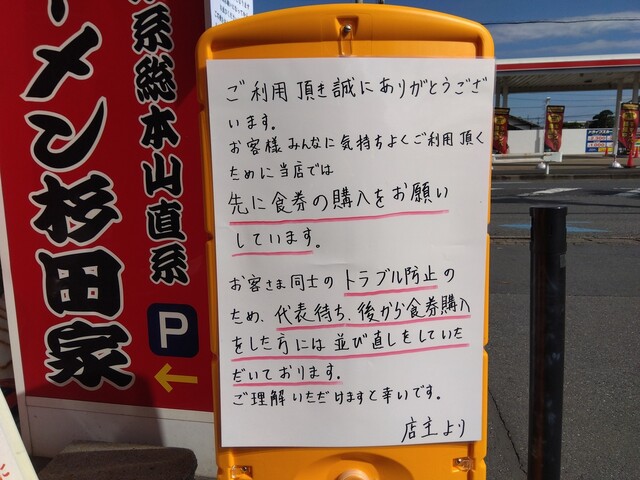 ラーメン杉田家
系総本山直系
P
ご利用頂き誠にありがとうござ
います。
お客様みんなに気持ちよくご利用頂く
ために当店では
先に食券の購入をお願い
しています。
お客さま同士のトラブル防止の
ため、代表待ち、後から食券購入
をした方には並び直しをしていた
だいております。
ご理解いただけますと幸いです。
店主より